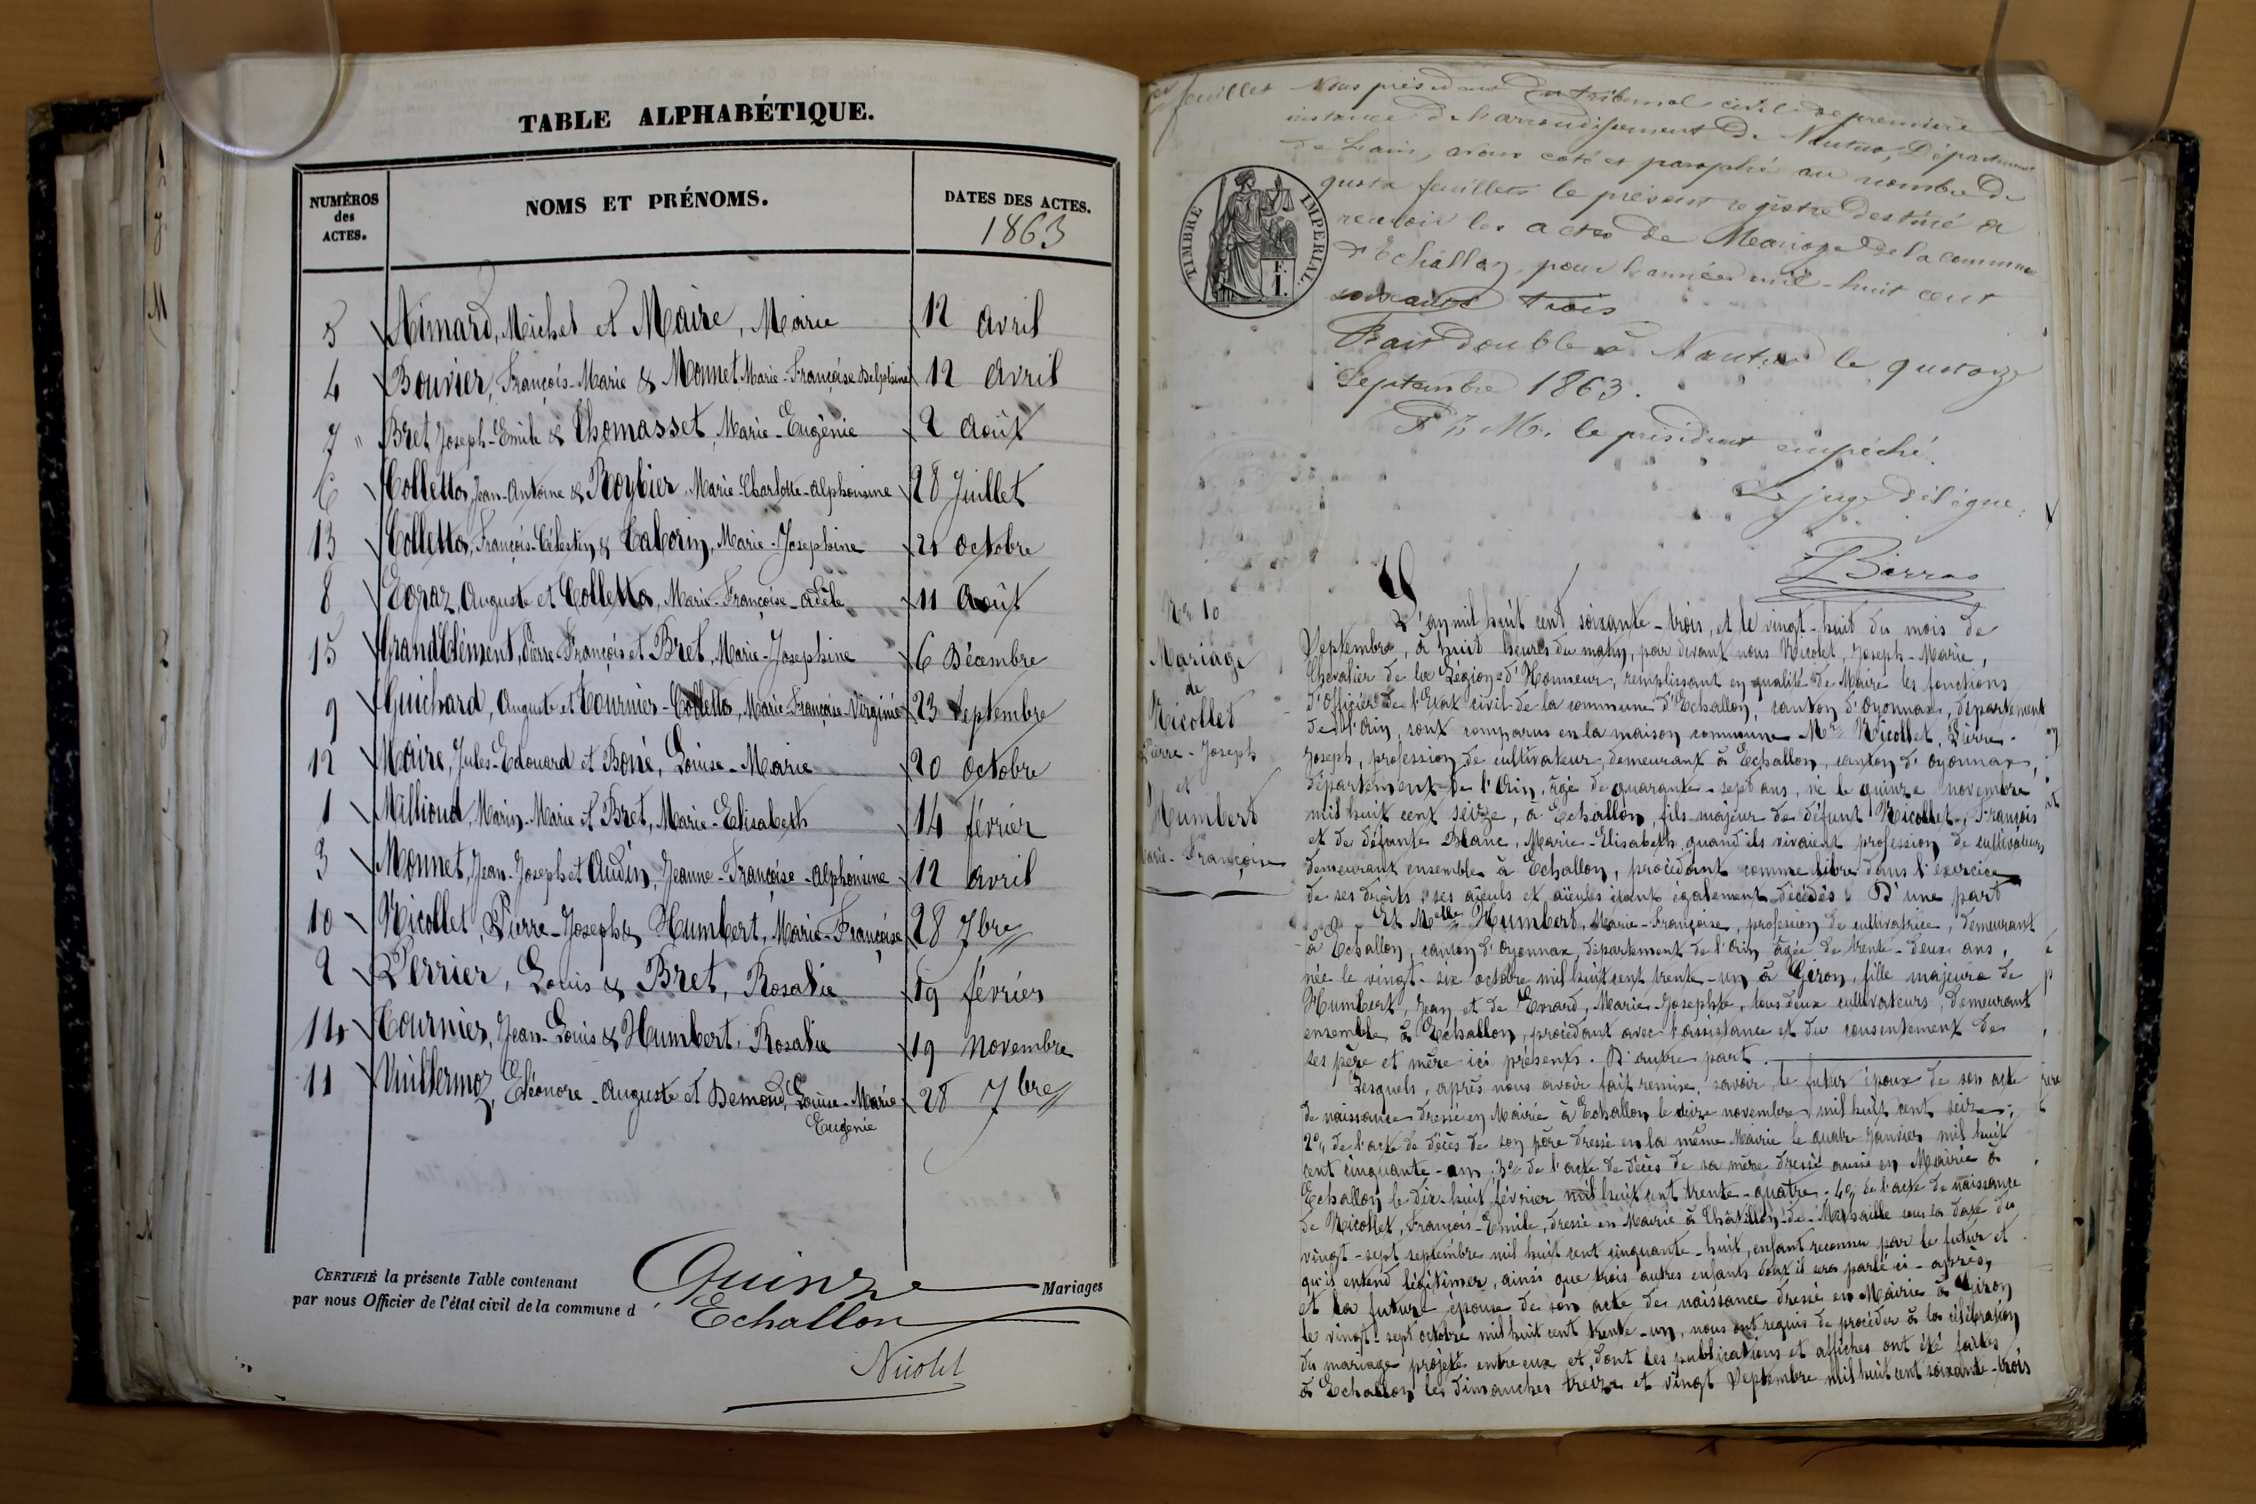 TABLE ALPHABÉTIQUE.
NUMÉROS des ACTES.
NOMS ET PRÉNOMS.
DATES DES ACTES.
1863
5 Aimard, Michel et Maire, Marie 12 avril
4 Bouvier, François-Marie & Monnet Marie-Françoise Delphine 12 avril
7 " Bret Joseph-Emile & Thomasset, Marie-Eugènie 2 Août
6 Colletta, Jean-Antoine & Roybier, Marie-Charlotte-alphonsine 28 Juillet
13 Colletta, François-Célestin & Taborin, Marie-Josephine 21 octobre
8 Egraz, Auguste et Colletta, Marie-Françoise-adèle 11 Août
15 GrandClément, Pierre-François et Bret, Marie-Josephine 6 Décembre
9 Guichard, Auguste et Tournier-Colletta, Marie-Françoise-Virginie 23 Septembre
12 Maire, Jules-Edouard et Boné, Louise-Marie 20 octobre
1 Millioud, Marin-Marie et Bret, Marie-Elisabeth 14 février
3 Monnet, Jean-Joseph et Audin, Jeanne-Françoise-alphonsine 12 avril
10 Nicollet, Pierre-Joseph & Humbert, Marie-Françoise 28 7bre
2 Perrier, Louis & Bret, Rosalie 19 février
14 Tournier, Jean-Louis & Humbert, Rosalie 19 novembre
11 Vuillermoz, Eléonore-Auguste et Demond, Louise-Marie 28 7bre
Eugénie
CERTIFIÉ la présente Table contenant Quinze Mariages
par nous Officier de l'état civil de la commune d'Echallon
Nicolet
1er feuillet Nous président du tribunal civil de première
instance de l'arrondissement de Nantua, Département
de l'ain, avons coté et paraphé au nombre de
quatre feuillets le présent registre destiné à
recevoir les actes de Mariage de la commune
d'Echallon, pour l'année mil-huit cent
soixante trois
TIMBRE IMPÉRIAL.
Fait double à Nantua le quatorze
Septembre 1863.
P. M. le président empêché.
Le juge délégué
No 10
Mariage
de
Nicollet
Pierre-Joseph
et
Humbert
Marie-Françoise
L'an mil huit cent soixante-trois, et le vingt-huit du mois de
Septembre, à huit heures du matin, par devant nous Nicolet, Joseph-Marie,
Chevalier de la Légion d'Honneur, remplissant en qualité de Maire les fonctions
d'Officier de l'Etat civil de la commune d'Echallon, canton d'oyonnax, département
de l'Ain, sont comparus en la maison commune Mr Nicollet, Pierre-
Joseph, profession de cultivateur, demeurant à Echallon, canton d'oyonnax,
département de l'Ain, âgé de quarante-sept ans, né le quinze novembre
mil huit cent seize, à Echallon, fils majeur de défunt Nicollet, François
et de défunte Blanc, Marie-Elisabeth, quand ils vivaient profession de cultivateurs
demeurant ensemble à Echallon, procédant comme libre dans l'exercice
de ses droits, ses aïeuls et aïeules étant également décédés. D'une part
Et Melle Humbert, Marie-Françoise, profession de cultivatrice, demeurant
à Echallon, canton d'Oyonnax, département de l'Ain âgée de trente-deux ans,
née le vingt-six octobre mil huit cent trente-un à Giron, fille majeure de
Humbert, Jean et de Evrard, Marie-Josephte, tous deux cultivateurs, demeurant
ensemble à Echallon, procédant avec l'assistance et du consentement de
ses père et mère ici présents. D'autre part.
Lesquels, après nous avoir fait remise, savoir, le futur époux de son acte
de naissance dressé en Mairie à Echallon le dize novembre mil huit cent seize;
2º de l'acte de décès de son père dressé en la même Mairie le quatre Janvier mil huit
cent cinquante-un; 3º de l'acte de décès de sa mère dressé aussi en Mairie à
Echallon le dix-huit février mil huit cent trente-quatre. 4º de l'acte de naissance
de Nicollet, François-Emile, dressé en Mairie à Châtillon-de-Michaille sous la date du
vingt-sept septembre mil huit cent cinquante-huit, enfant reconnu par le futur et
qu'il entend légitimer, ainsi que trois autres enfants dont il sera parlé ci-après,
et la future épouse de son acte de naissance dressé en Mairie à Giron
le vingt-sept octobre mil huit cent trente-un, nous ont requis de procéder à la célébration
du mariage projeté entre eux et dont les publications et affiches ont été faites
à Echallon les dimanches treize et vingt Septembre mil huit cent soixante-trois